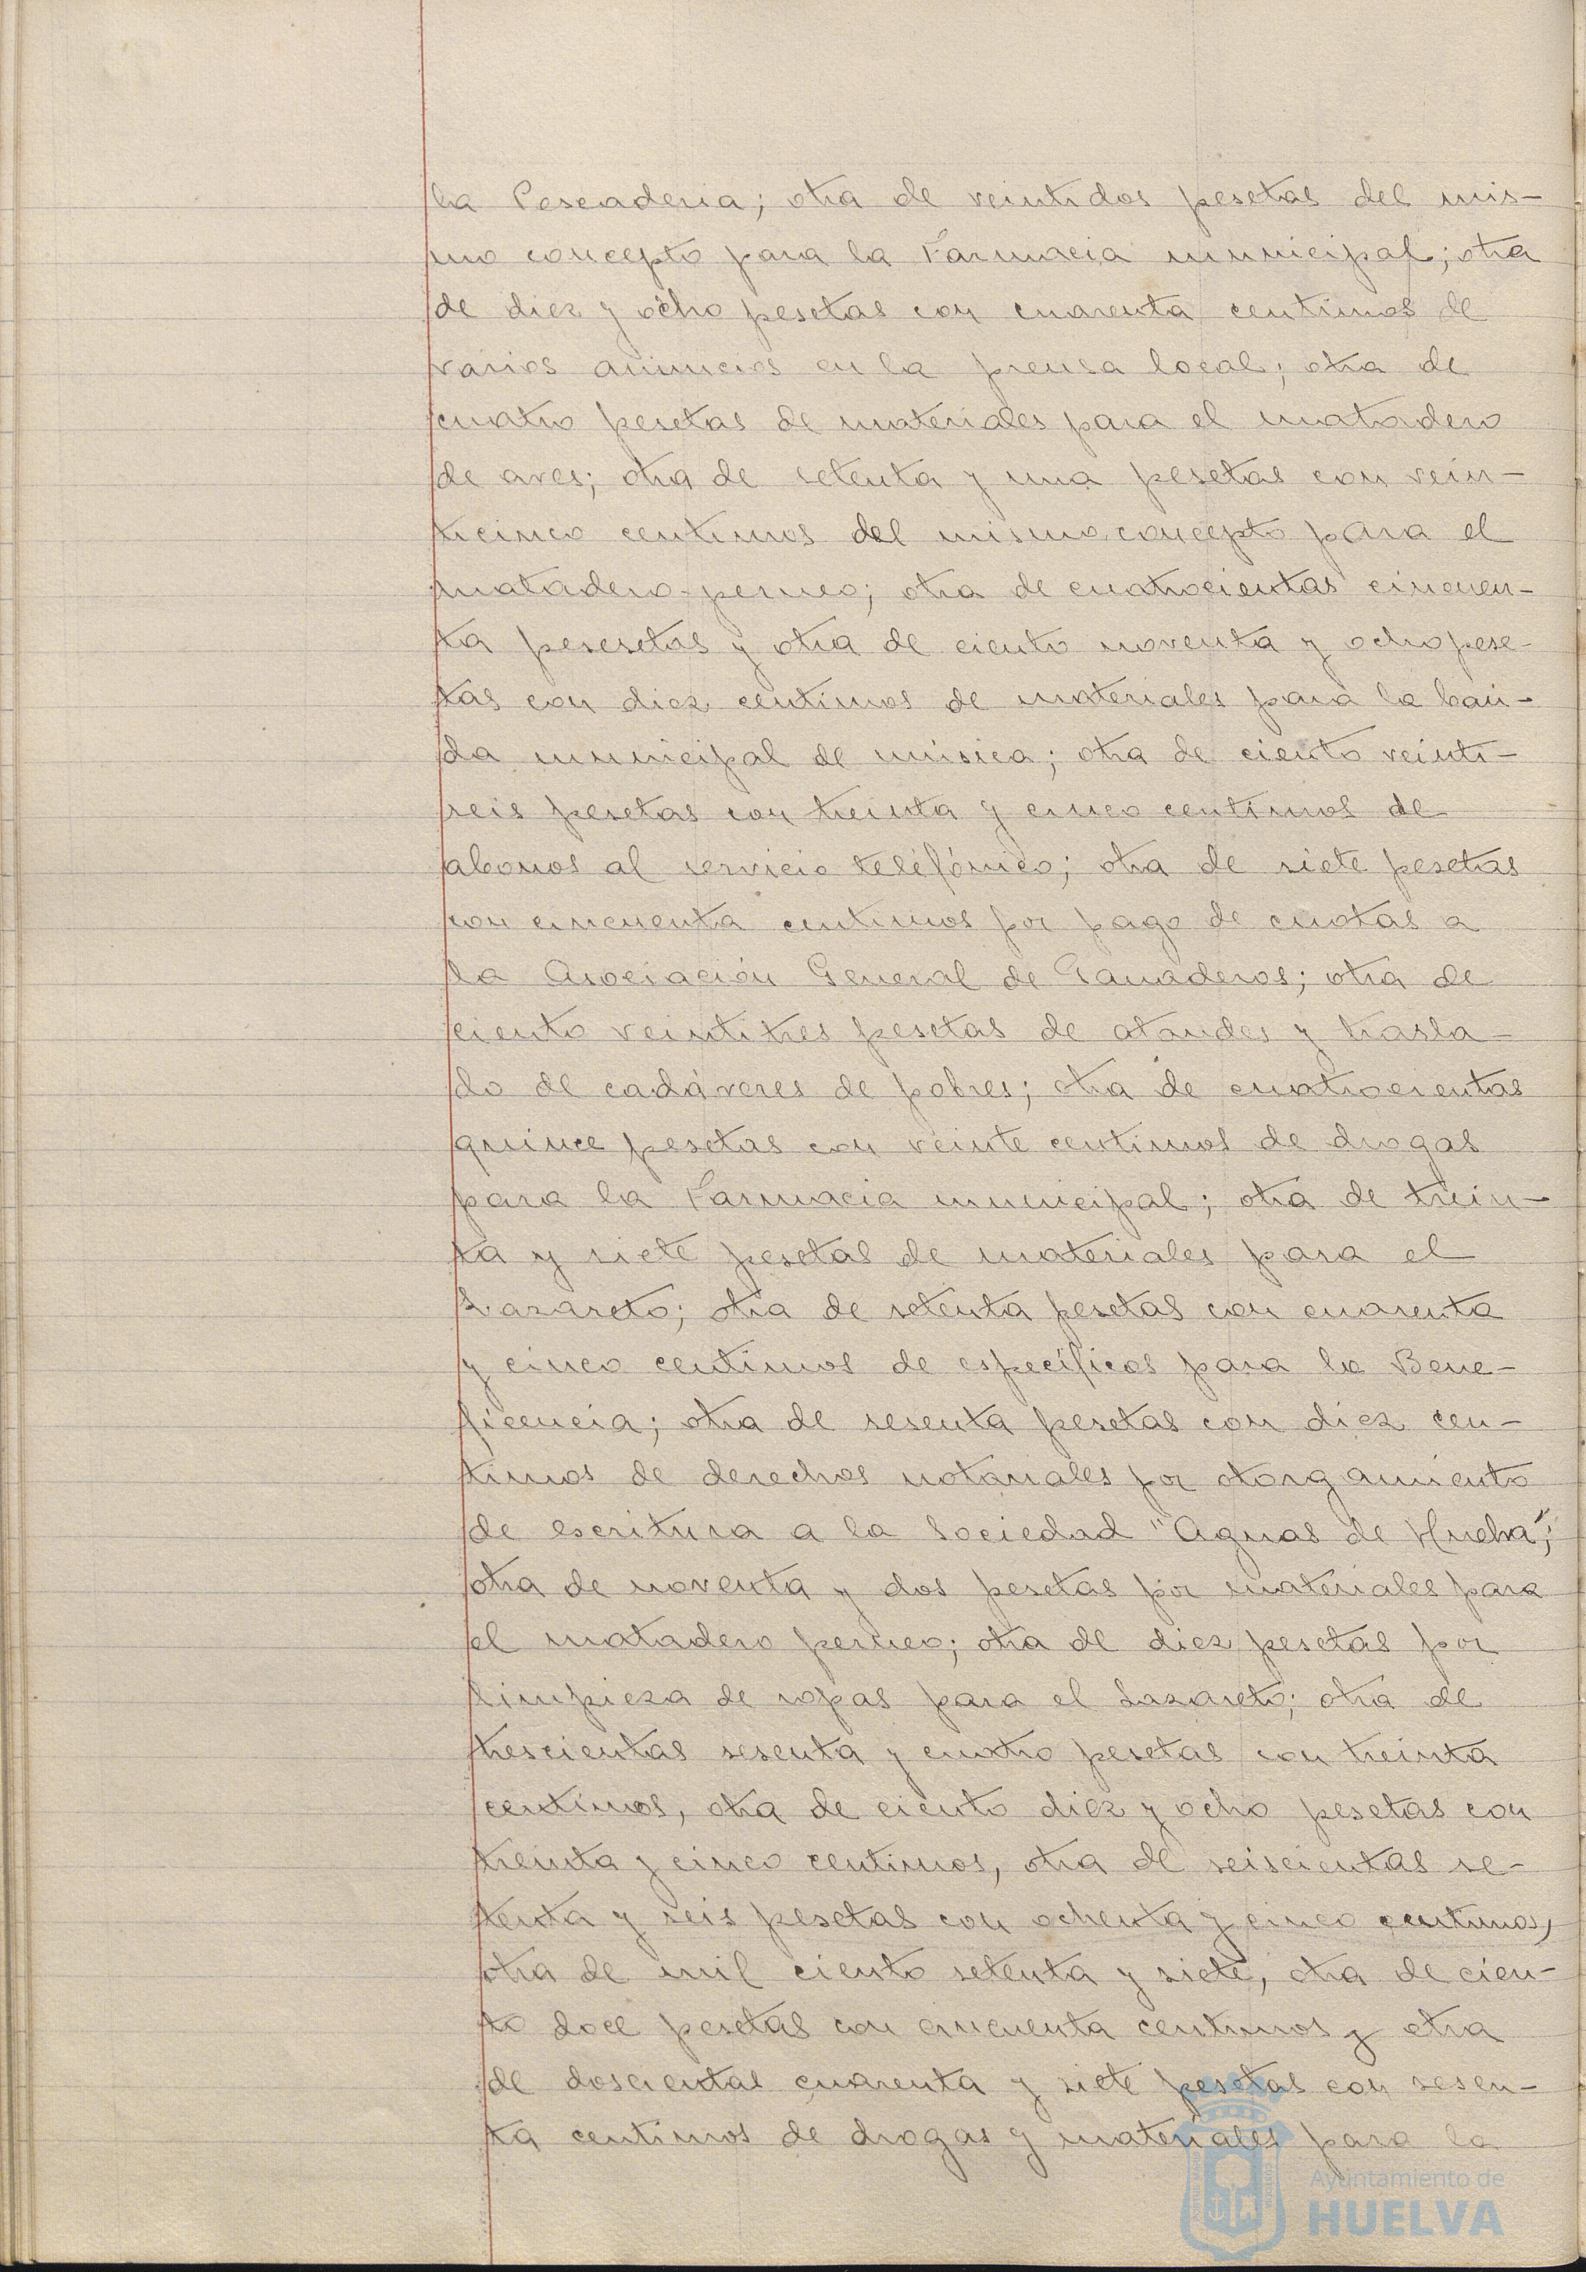 la Pescaderia; otra de veintidos pesetas del mis-
mo concepto para la Farmacia municipal; otra
de diez y ocho pesetas con cuarenta centimos de
varios anuncios en la prensa local; otra de
cuatro pesetas de materiales para el matadero
de aves; otra de setenta y una pesetas con vein-
ticinco centimos del mismo concepto para el
matadero perneo; otra de cuatrocientas cincuen-
ta pesesetas y otra de ciento noventa y ocho pese-
tas con diez centimos de materiales para la ban-
da municipal de música; otra de ciento veinti-
seis pesetas con treinta y cinco centimos de
abonos al servicio teléfónico; otra de siete pesetas
con cincuenta centimos por pago de cuotas a
la Asociación General de Ganaderos; otra de
ciento veintitres pesetas de ataudes y trasla-
do de cadáveres de pobres; otra de cuatrocientas
quince pesetas con veinte centimos de drogas
para la Farmacia municipal; otra de trein-
ta y siete pesetas de materiales para el
Lazareto; otra de setenta pesetas con cuarenta
y cinco centimos de específicos para la Bene-
ficencia; otra de sesenta pesetas con diez cen-
timos de derechos notariales por otorgamiento
de escritura a la Sociedad "Aguas de Huelva";
otra de noventa y dos pesetas por materiales para
el matadero perneo; otra de diez pesetas por
limpieza de ropas para el Lazareto; otra de
trescientas sesenta y cuatro pesetas con treinta
centimos, otra de ciento diez y ocho pesetas con
treinta y cinco centimos, otra de seiscientas se-
tenta y seis pesetas con ochenta y cinco centimos,
otra de mil ciento setenta y siete, otra de cien-
to doce pesetas con cincuenta centimos y otra
de doscientas cuarenta y siete pesetas con sesen-
ta centimos de drogas y materiales para la
Ayuntamiento de
HUELVA